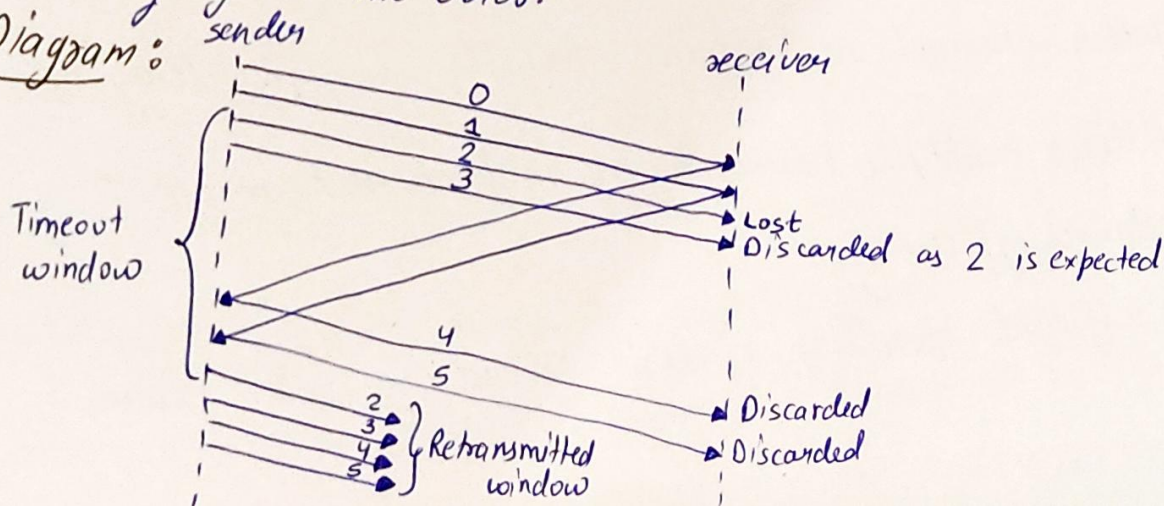 Diagram:
sender
receiver
0
1
2
3
Timeout
window
Lost
Discarded as 2 is expected
4
5
Discarded
Discarded
2
3
4
5
Retransmitted
window